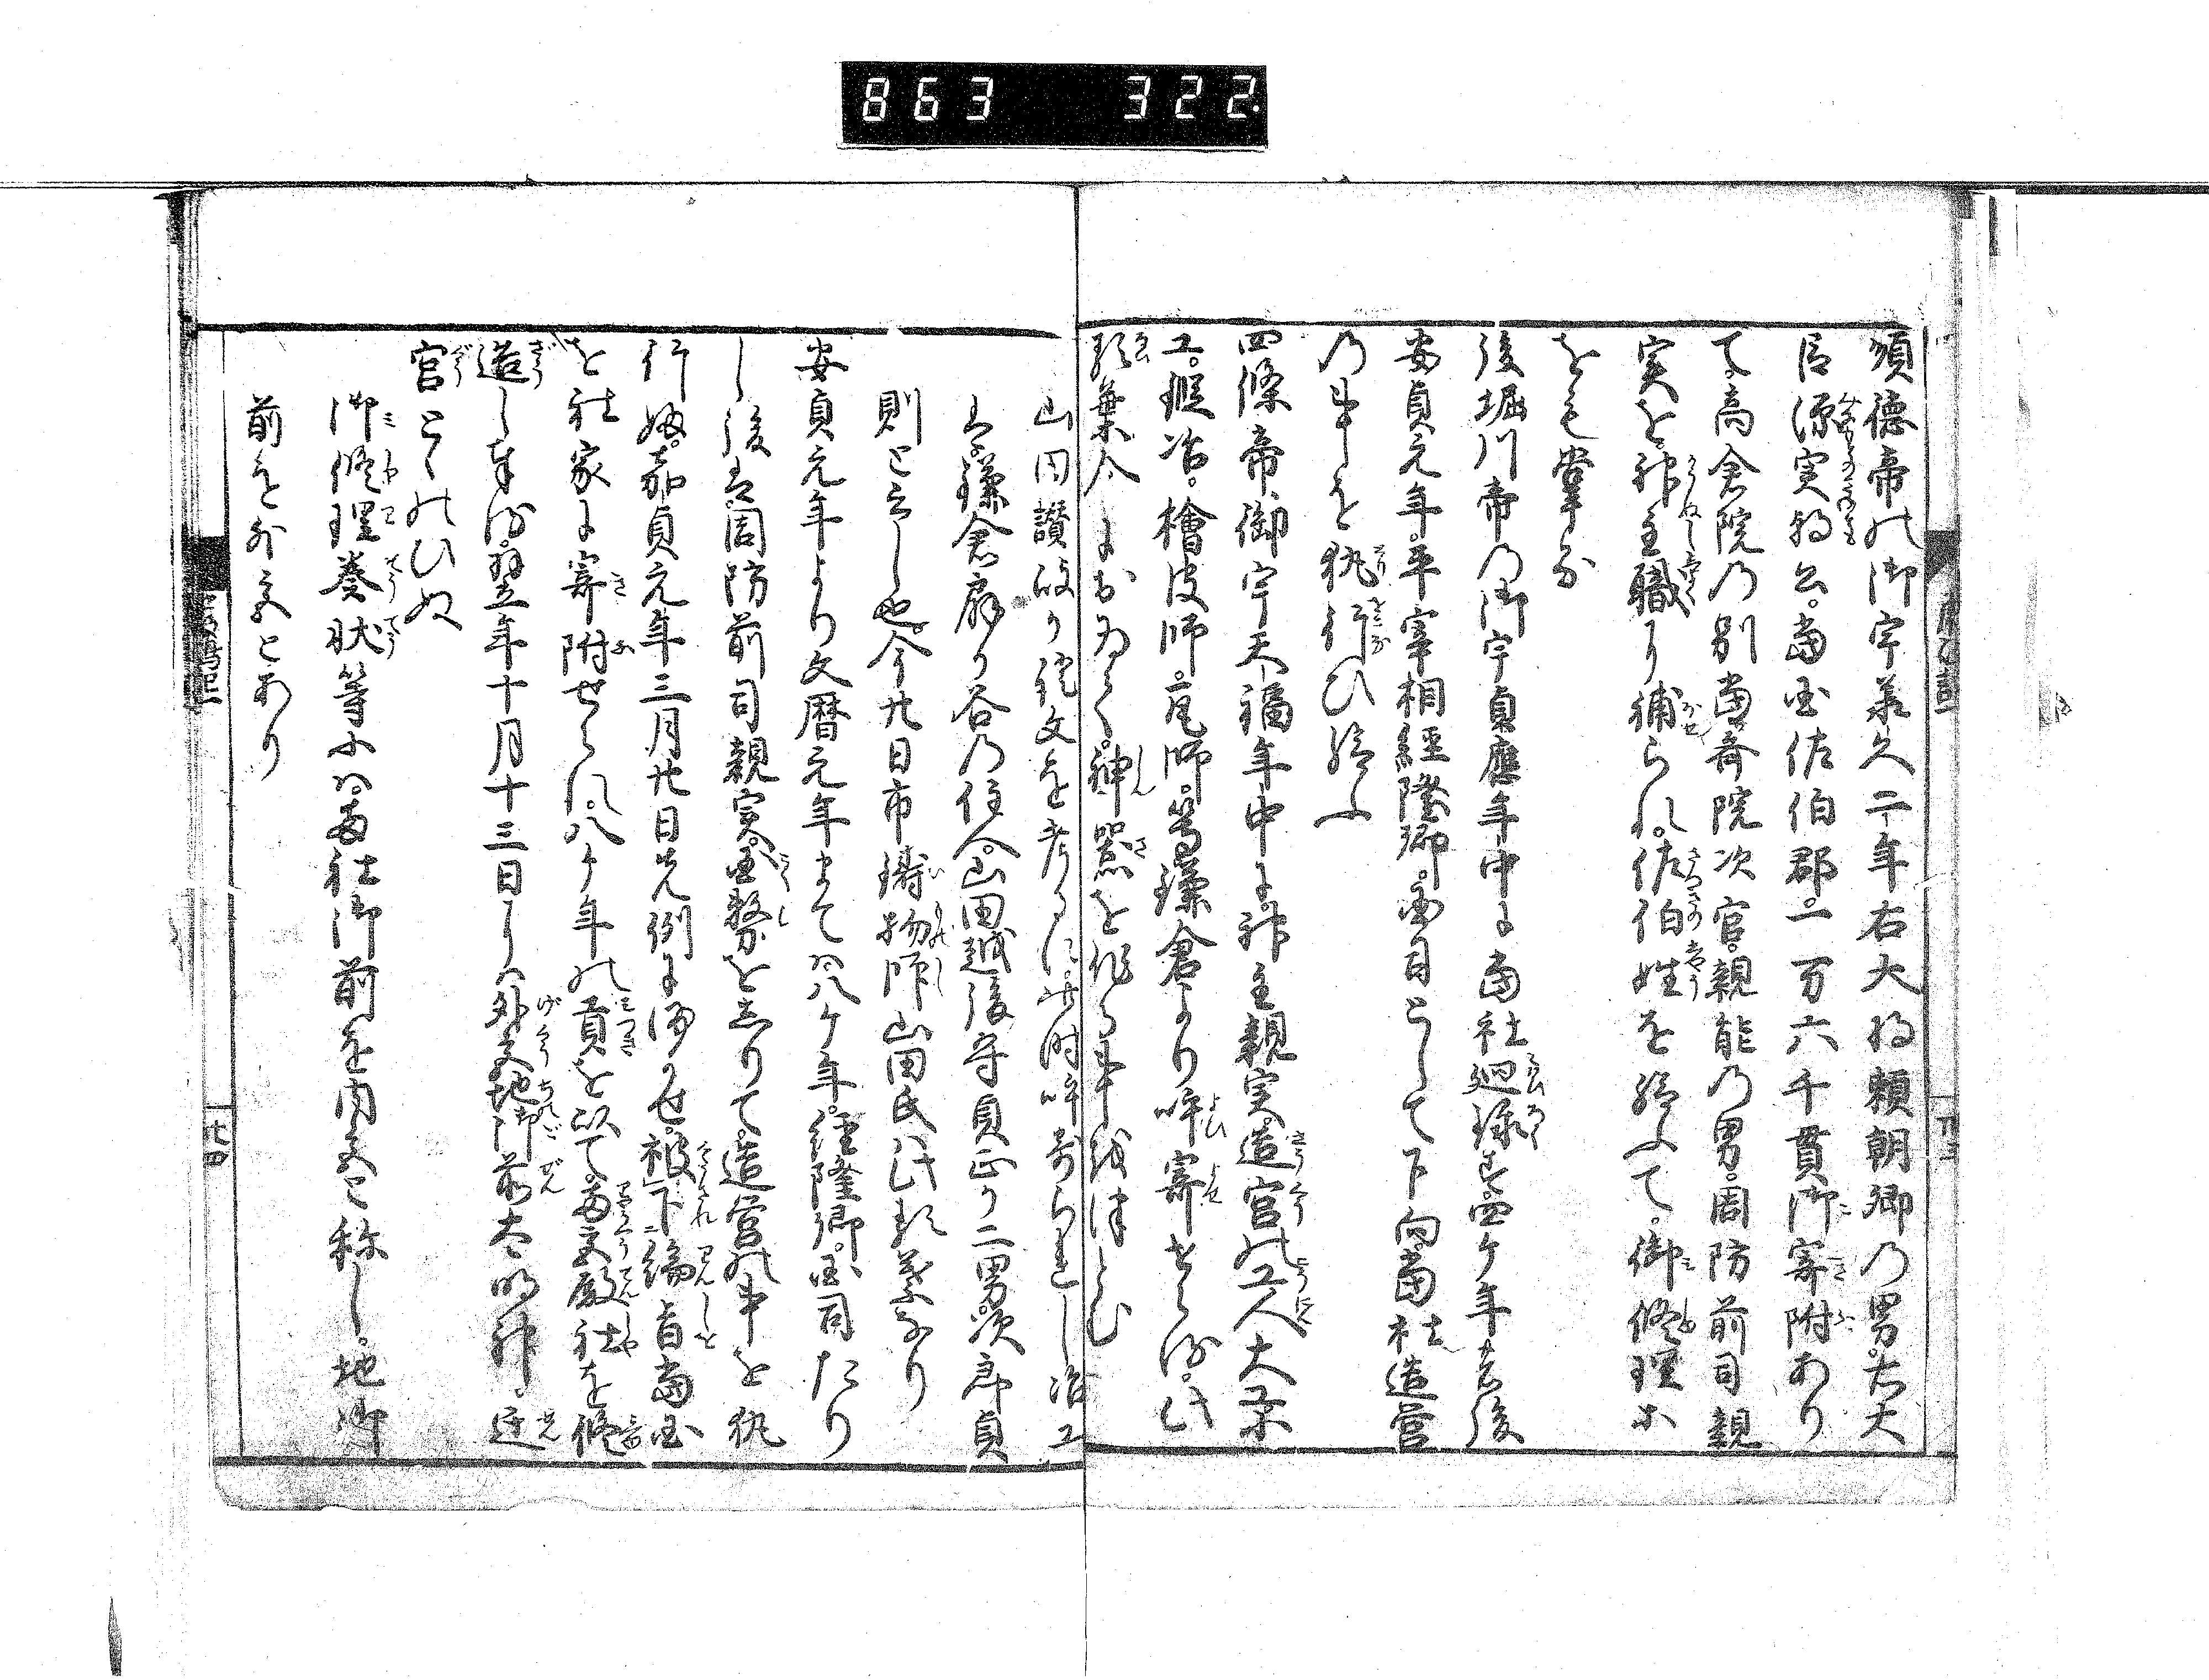 863 322
順徳帝の御宇承久二年右大将頼朝卿の男右大
臣源実朝公。當国佐伯郡。一万六千貫御寄附あり
て。高倉院の別當斎院次官。親能の男。周防前司親
実を。神主職に補られ。佐伯姓を給ふて。御修理等
をも掌る
後堀川帝の御宇貞應年中に當社廻録す。四ケ年古後
安貞元年。平宰相経隆卿。国目として下向。當社造営
の事を執行ひ給ふ
四條帝御宇天福年中に。神主親実。造宮の工人大系
工。鍛冶。檜皮師。瓦師。等鎌倉より呼寄せらる。此
類葉今におゐて。神器を作る事彼津とむ
山田讃岐が證文を考るに。此時呼寄られし冶工
は。鎌倉扇が谷の住人。山田越後守貞正が二男。次郎貞
則と云し也。今廿日市鋳物師山田氏は此類葉なり
安貞元年より文暦元年まてハ八ケ年。経隆卿。国司たり
し後は。周防前司親実。国務をしりて。造営の事を執
行ふ。嘉貞元年三月廿日先例にまかせ。被下綸旨當国
を社家に寄附せられ。八ケ年の貢を以て。両宮殿社を修
造し奉る。翌年十月十三日にハ外宮地御前大明神。遷
宮ことのひぬ
御修理奏状等にハ。當社御前を内宮と称し。地御
前を外宮とあり
十四